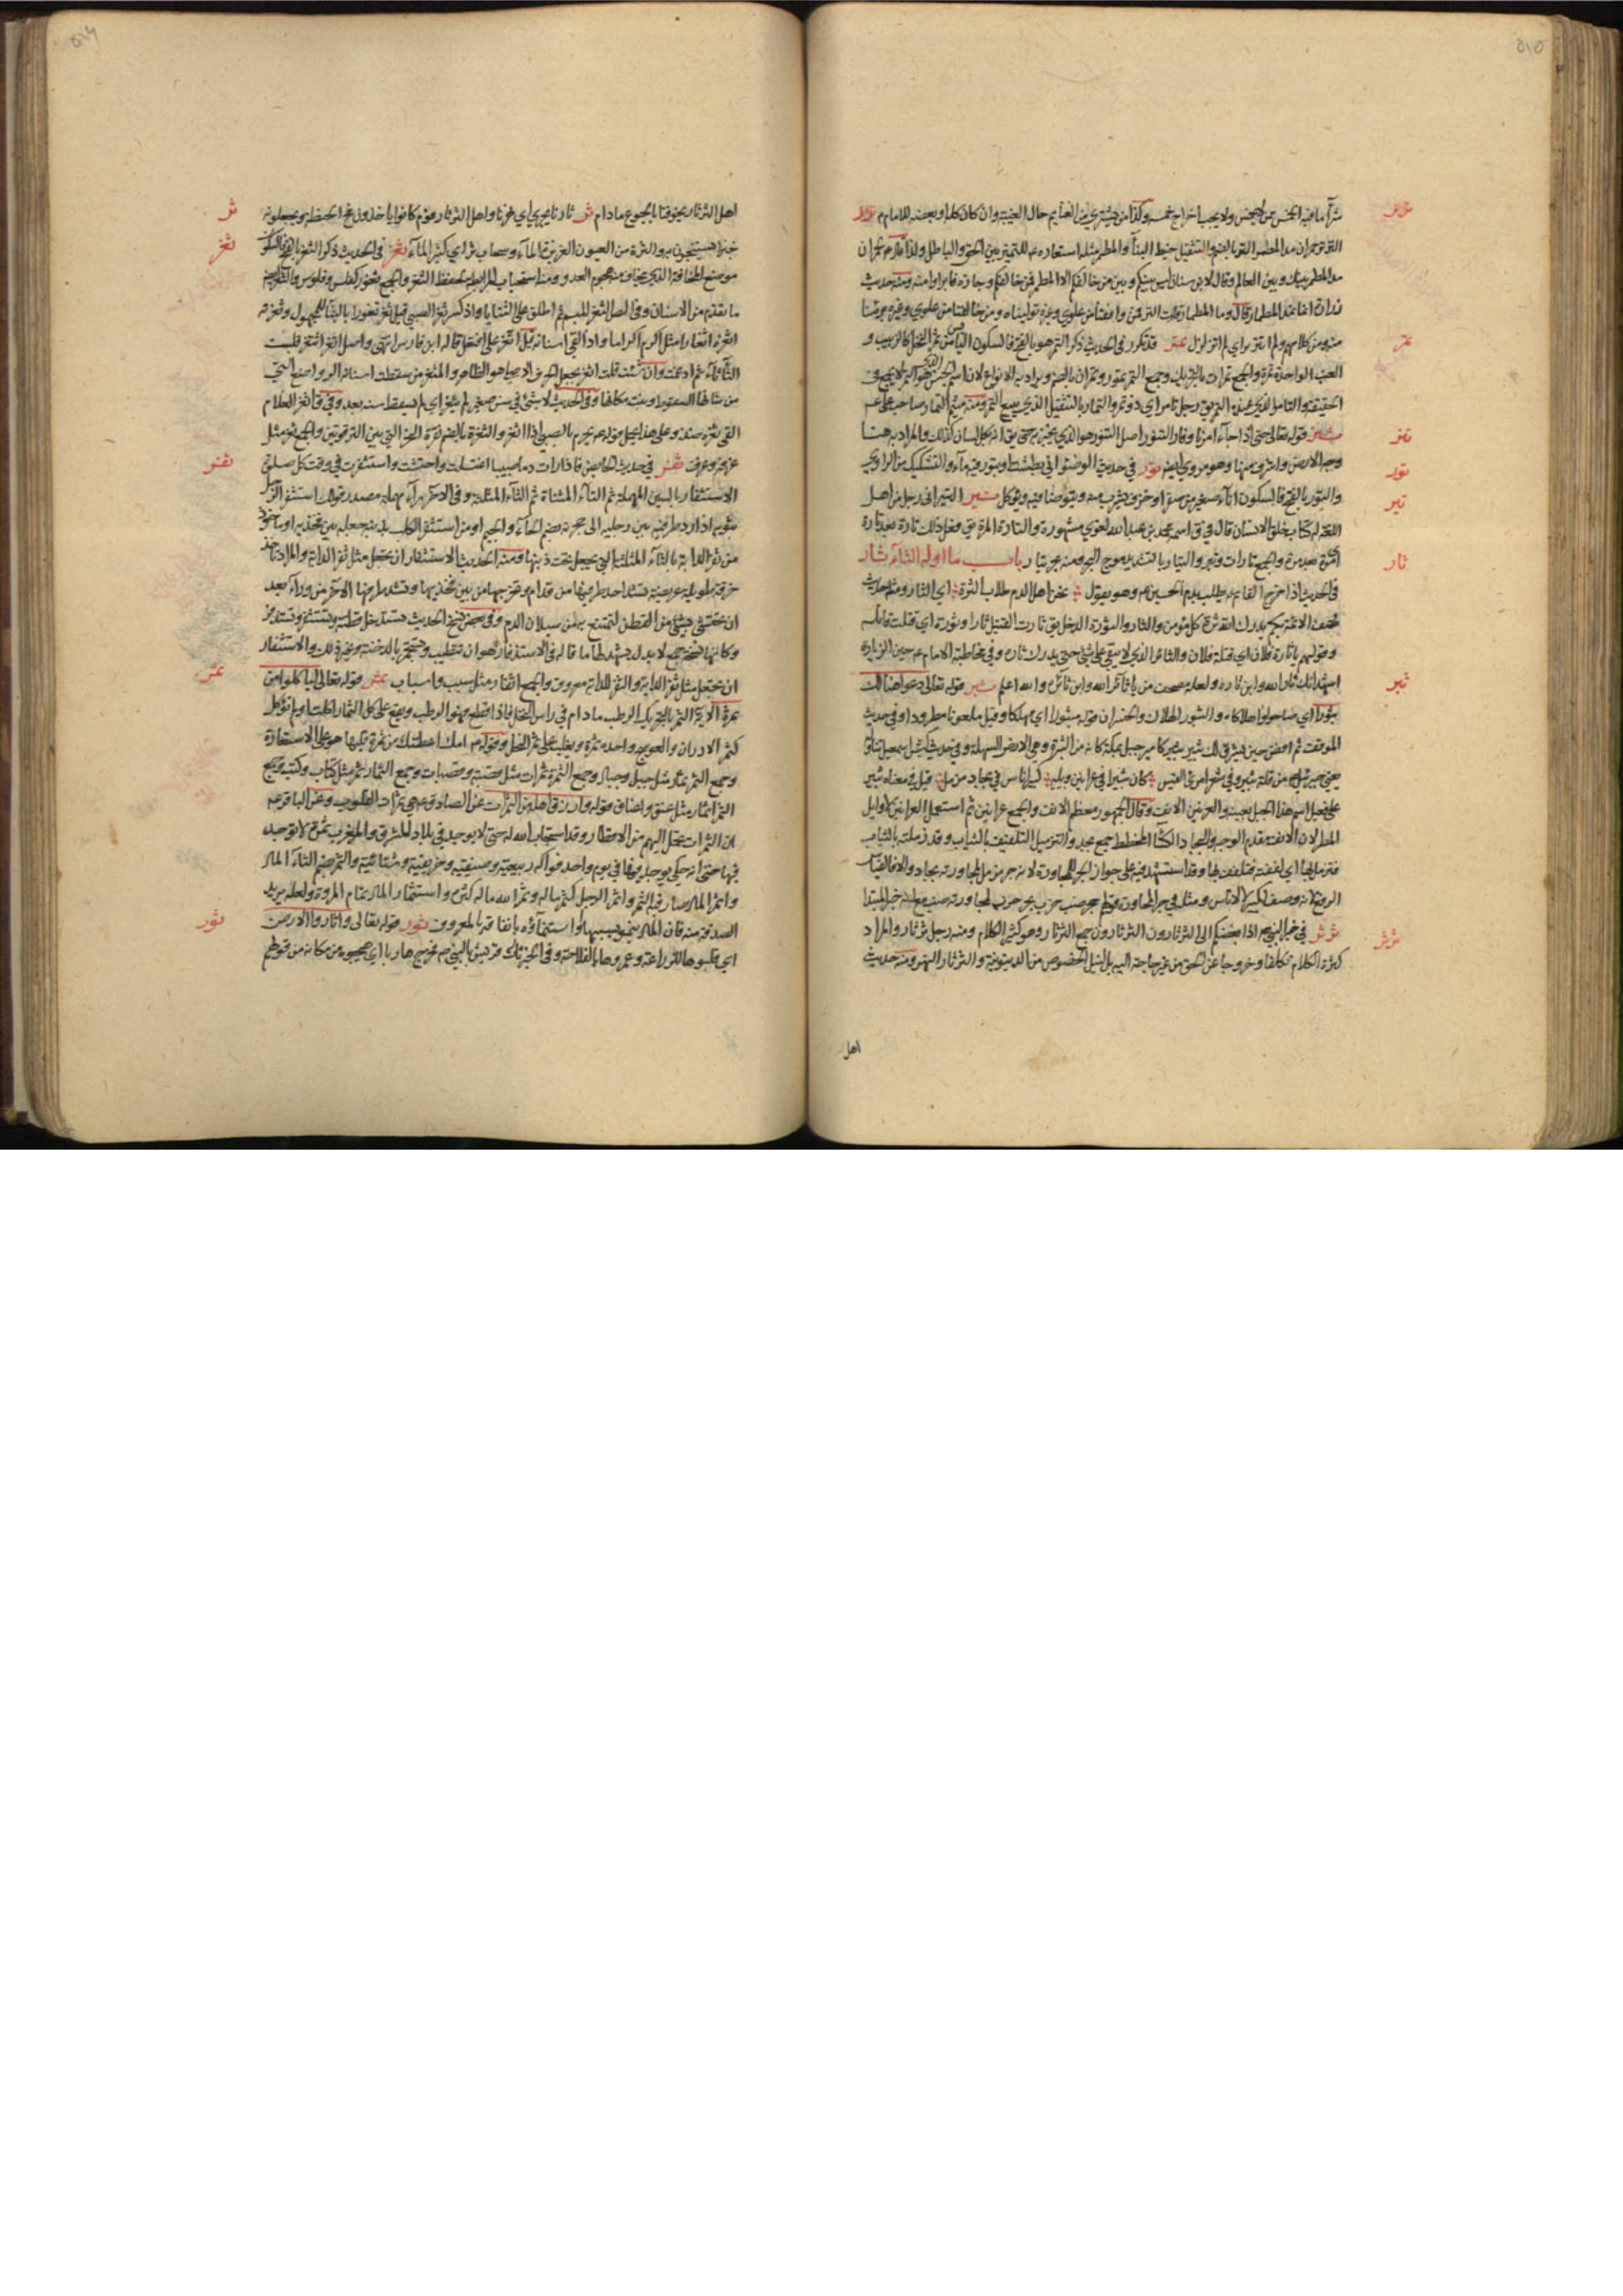 ٥١٥
شراء ما فيه الخمس ممن لا يخمس ولا يجب اخراج خمسه وكذا من يشتري من الغنايم حال الغيبة وان كان كلها او بعضه للامام
التر تر حمران مد المطمر التر بالضم والتثقيل خيط البناء والمطمر مثله استعاره للتمييز بين الحق والباطل
مد المطمر بينك وبين العالم وقال لابن سنان ليس بينكم وبين من خالفكم الا المطمر فمن خالفكم وجازه فابراوا منه ومنه حديث
زرارة انما نمد المطمار قال وما المطمار قلت التر فمن وافقنا من علوي وغيره توليناه ومن خالفنا من علوي وغيره برئنا
منه ومن كلامهم ولم يتزلزل تمر قد تكرر في الحديث ذكر التمر هو بالفتح فالسكون اليابس من ثمر النخل كالزبيب
العنب الواحدة تمرة والجمع تمرات بالتحريك وجمع التمر تمور وتمران بالضم ويراد به الانواع لان اسم الجنس لا يجمع في
الحقيقة والتامر الذي عنده التمر يق رجل تامر اي ذو تمر والتمار بالتثقيل الذي يبيع التمر ومنه ميثم التمار صاحب علي
تنر قوله تعالى حتى اذا جاء امرنا وفار التنور اصل التنور هو الذي يخبز به حتى يق انه بكل لسان كذلك والمراد به هنا
وجه الارض واشرف منها وهو مروي ايضا تور في حديث الوضوء اتي بطشت او بتور فيه ماء والتشكيك من الراوي
والتور بالفتح فالسكون اناء صغير من صفر او خزف يشرب منه ويتوضا فيه ويؤكل تير التيراني رجل من اهل
اللغة له كتاب خلق الانسان قال في ق اسمه محمد بن عبد الله لغوي مشهور والتارة المرة يق فعل ذلك تارة بعد تارة
اي مرة بعد مرة والجمع تارات وتير والتيار بالتشديد موج البحر ومنه بحر تيار باب ما اوله الثاء ثار
في الحديث اذا خرج القايم يطلب بدم الحسين ع وهو يقول نحن اهل الدم طلاب الثرة اي الثار ومثله حديث
وصف الائمة بكم يدرك الله ثرة كل مؤمن والثار والثؤرة الذحل يق ثارت القتيل ثارا وثؤرة اي قتلت قاتله
وقولهم يا ثارة فلان اي قتلة فلان والثائر الذي لا يبقي على شئ حتى يدرك ثاره وفي مخاطبة الامام ع حين الزيارة
اشهد انك ثار الله وابن ثاره ولعله مصحف من يا ثائر الله وابن ثائره والله اعلم ثبر قوله تعالى دعوا هنالك
ثبورا اي صاحوا واهلاكاه والثبور الهلاك والخسران قوله مثبورا اي مهلكا وقيل ملعونا مطرودا وفي حديث
الموقف ثم افض حين يشرق لك ثبير ثبير كامير جبل بمكة كانه من الثبرة وهي الارض السهلة وفي حديث كبش اسمعيل تناوله
يعني جبرئيل ع من قلة ثبير وفي شعر امرئ القيس كان ثبيرا في عرانين وبله كبير اناس في بجاد مزمل قيل في معناه ثبير
على فعيل اسم هذا الجبل بعينه والعرنين الانف وقال الجمهور معظم الانف والجمع عرانين ثم استعمل العرانين لاوايل
المطر لان الانف مقدم الوجه والبجاد الكساء المخطط جمعه بجد والتزميل التلفيف بالثياب وقد زملته بالثياب
فتزمل بها اي لففته فتلفف بها وقد استشهد فيه على جواز الجر للمجاورة لانه جر مزمل لمجاورته بجاد والا فالقياس
الرفع لانه وصف لكبير اناس ومثله في جر المجاورة قولهم جحر ضب خرب بجر خرب لمجاورته ضب مع انه خبر المبتدا
ثرثر في خبر النبي ص اذا ابغضكم الي الثرثارون الثرثارون جمع الثرثار وهو كثير الكلام ومنه رجل ثرثار والمراد
كثرة الكلام تكلفا وخروجا عن الحق من غير حاجة اليه بل لنيل الحضوض من الدنيوية والثرثار النهر ومنه حديث
اهل
تمر
تنر
تور
تير
ثار
ثبر
ثرثر
٥١٦
اهل الثرثار يخوفنا بالجوع ما دام ثر ثارنا يجري اي نهرنا واهل الثرثار قوم كانوا ياخذون مخ الحنطة ويجعلونه
خبزا يستنجون به والثرة من العيون الغزيرة الماء وسحاب ثر اي كثير الماء ثغر في الحديث ذكر الثغر بالفتح فالسكون
موضع المخافة الذي يخاف منه هجوم العدو ومنه استحباب المرابطة لحفظ الثغر والجمع ثغور كفلس وفلوس والثغر ايضا
ما تقدم من الاسنان وفي اصل الثغر المبسم ثم اطلق على الثنايا واذا كسر ثغر الصبي قيل ثغر ثغورا بالبناء للمجهول وثغرته
اثغره اثغارا مثل اكرم اكراما واذا القى اسنانه قيل اثغر على افتعل قاله ابن فارس انتهى واصل اثغر اثتغر قلبت
الثاء تاء ثم ادغمت وان شئت قلت اثغر بجعل الحرف الاصلي هو الظاهر والمثغر من سقطت اسنانه الرواضع التي
من شانها السقوط ونبت مكانها وفي الحديث لا شئ في سن صغير لم يثغر اي لم يسقط سنه بعد وفي ق اثغر الغلام
القى ثغره ضد وعلى هذا يحمل قوله ع يحرم بالصبي اذا اثغر والثغرة بالضم نقرة النحر التي بين الترقوتين والجمع ثغر مثل
غرفة وغرف ثفر في حديث الحايض فاذا رات دما صبيبا اغتسلت واحتشت واستثفرت في وقت كل صلوة
الاستثفار بالسين المهملة ثم التاء المثناة ثم الثاء المثلثة وفي الاخر راء مهملة مصدر قولك استثفر الرجل
بثوبه اذا رد طرفيه بين رجليه الى حجزته بضم الحاء والجيم او من استثفر الكلب بذنبه جعله بين فخذيه او ماخوذ
من ثفر الدابة بالثاء المثلثة الذي يجعل تحت ذنبها ومنه الحديث الاستثفار ان تجعل مثل ثفر الدابة والمراد تاخذ
خرقة طويلة عريضة تشد احد طرفيها من قدام وتخرجها من بين فخذيها وتشد طرفها الاخر من وراء بعد
ان تحتشي بشئ من القطن لتمتنع به من سيلان الدم وفي بعض نسخ الحديث تستدخل قطنة وتستثفر وتستذفر
ان تجعل مثل ثفر الدابة والثفر للدابة معروف والجمع اثفار مثل سبب واسباب ثمر قوله تعالى لياكلوا من
ثمره الاية الثمر بالتحريك الرطب ما دام في راس النخل فاذا قطع فهو الرطب ويقع على كل الثمار اكلت او لم تؤكل
كثمر الاراك والعوسج واحده ثمرة ويغلب على ثمر النخل وقولهم امك اعطتك من ثمرة قلبها هو على الاستعارة
وجمع الثمر ثمار مثل جبل وجبال وجمع الثمرة ثمرات مثل قصبة وقصبات وجمع الثمار ثمر مثل كتاب وكتب وجمع
الثمر اثمار مثل عنق واعناق قوله وارزق اهله من الثمرات عن الصادق ع هي ثمرات القلوب وعن الباقر ع
ان الثمرات تحمل اليهم من الاقطار وقد استجاب الله له حتى لا يوجد في بلاد المشرق والمغرب ثمرة لا توجد
فيها حتى انه حكي يوجد فيها في يوم واحد فواكه ربيعية وصيفية وخريفية وشتائية والثمر بضم الثاء المال
واثمر الشجر صار فيه الثمر واثمر الرجل كثر ماله وثمر الله ماله كثره واستثمار المال تمام المروة ولعله يريد
الصدقة منه فان المال ينمو بسببها او استنماؤه بانفاقه بالمعروف ثور قوله تعالى واثاروا الارض
اي قلبوها للزراعة وعمروها بالفلاحة وفي الخبر
ثر
ثغر
ثفر
ثمر
ثور